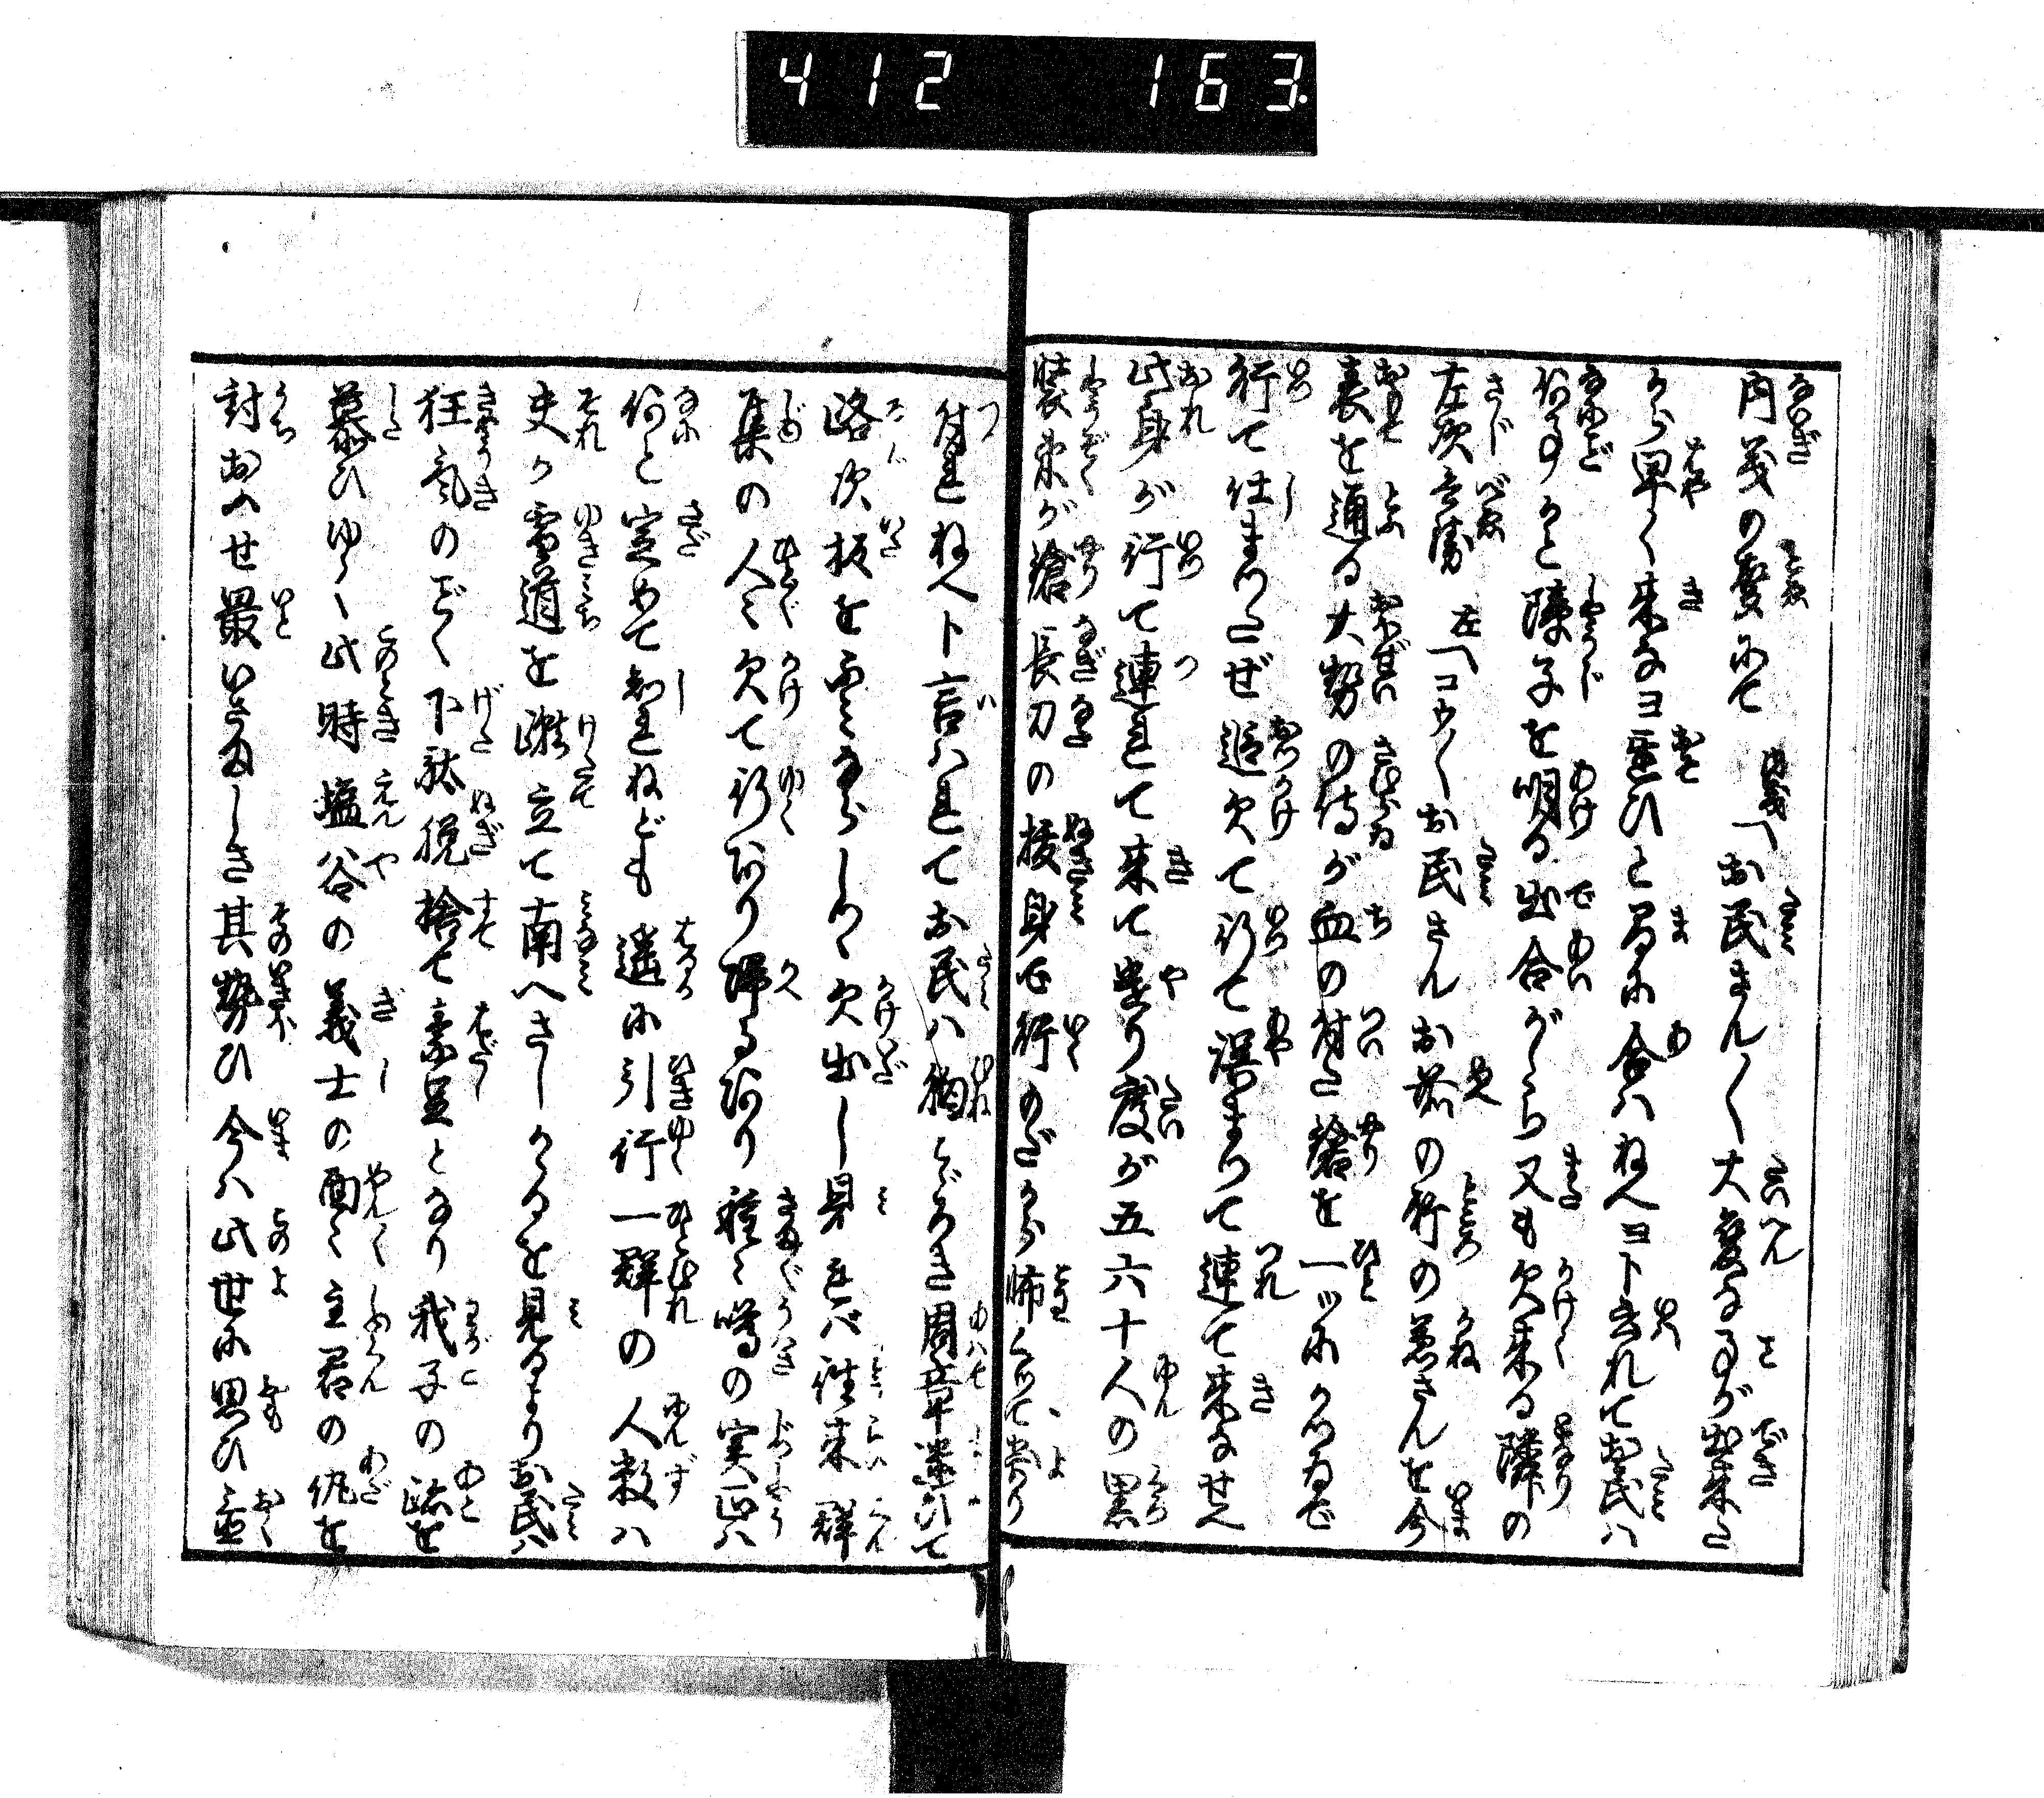 412 163.
内義の聲にて 内義「お民さん〳〵大変な事が出来た
から早く来なヨ遅ひと間に合はねへヨト云れてお民は
何事かと障子を明る出合がしら又も欠来る隣の
左次兵衛 左「コウ〳〵お民さんお前の所の兼さんを今
表を通る大勢の侍が血の付た鎗を一ツにかついで
行て仕まつたぜ追欠て行て誤まつて連て来なせへ
此身が行て連れて来て遣り度が五六十人の黒
装束が鎗長刀の抜身で行のだから怖くつて寄り
付れねへト言はれてお民は胸とゞろき周章迷ひて
路次板を踏ならしつゝ欠出し見れば往来群
集の人々欠て行あり帰るあり種々噂の実正は
何と定めて知れねども遥に引行一群の人数は
夫か雪道を蹴立て南へさしかゝるを見るよりお民は
狂気のごとく下駄脱捨て素足となり我子の跡を
慕ひゆく此時塩谷の義士の面々主君の仇を
討おふせ最いさましき其勢ひ今は此世に思ひ置